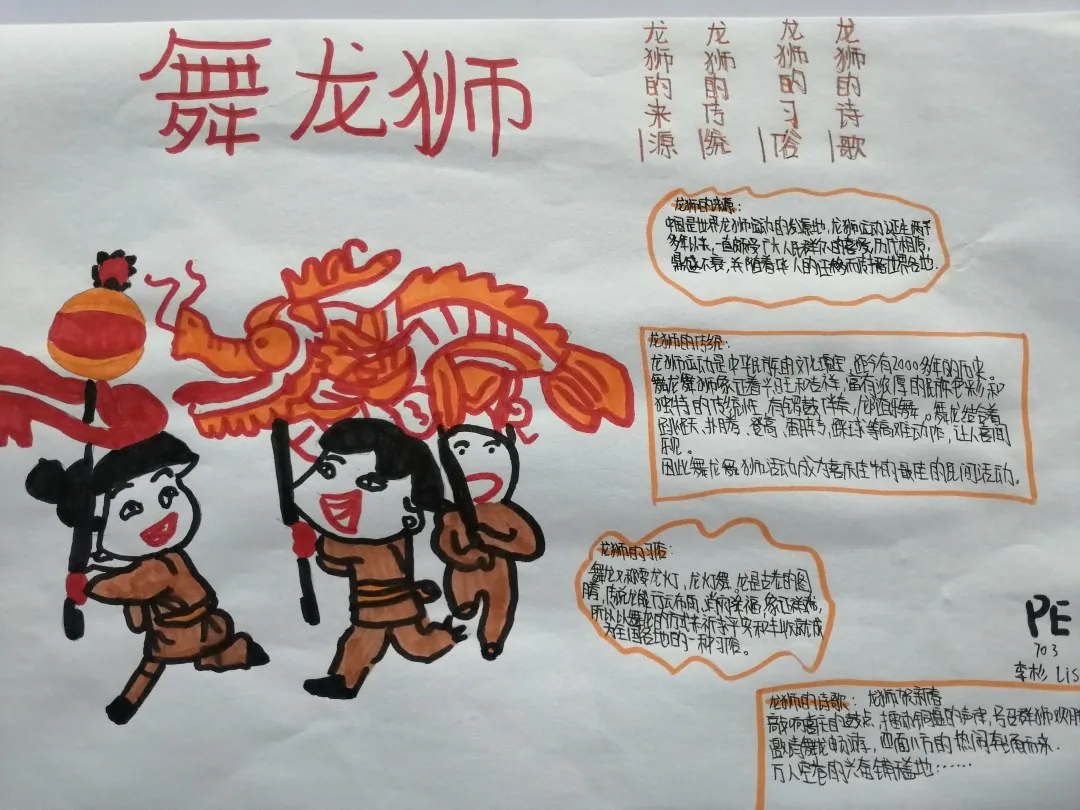 舞龙狮
龙狮的来源
龙狮的传统
龙狮的习俗
龙狮的诗歌
龙狮的来源:
中国是世界龙狮运动的发源地,龙狮运动诞生两千
多年以来,一直颇受广大人民群众的喜爱,历代相传,
鼎盛不衰,并随着华人的迁移而传播世界各地.
龙狮的传统:
龙狮运动是中华民族的文化瑰宝,迄今有2000多年的历来
舞龙舞狮象征着兴旺和吉祥,富有浓厚的民族色彩和
独特的传统性,有锣鼓伴奏,龙狮群舞。舞龙结合着
扑腾、登高、踩球等高难动作,让人喜闻
乐见。
因此舞龙舞狮活动成为喜庆佳节的最佳的民间活动。
龙狮的习俗:
舞龙又称耍龙灯,龙灯舞。龙是古老的图
腾,传说龙能行云布雨、消灾降福,象征祥瑞,
所以以舞龙的方式来祈求平安和丰收就成
为全国各地的一种习俗。
PE
703
李杉 Lis
龙狮的诗歌: 龙狮贺新春
敲响喜庆的鼓点,播动铜盘的声律,号召群狮欢
邀请舞龙中游,四面八方的热闹
万人空巷的兴奋铺天盖地……